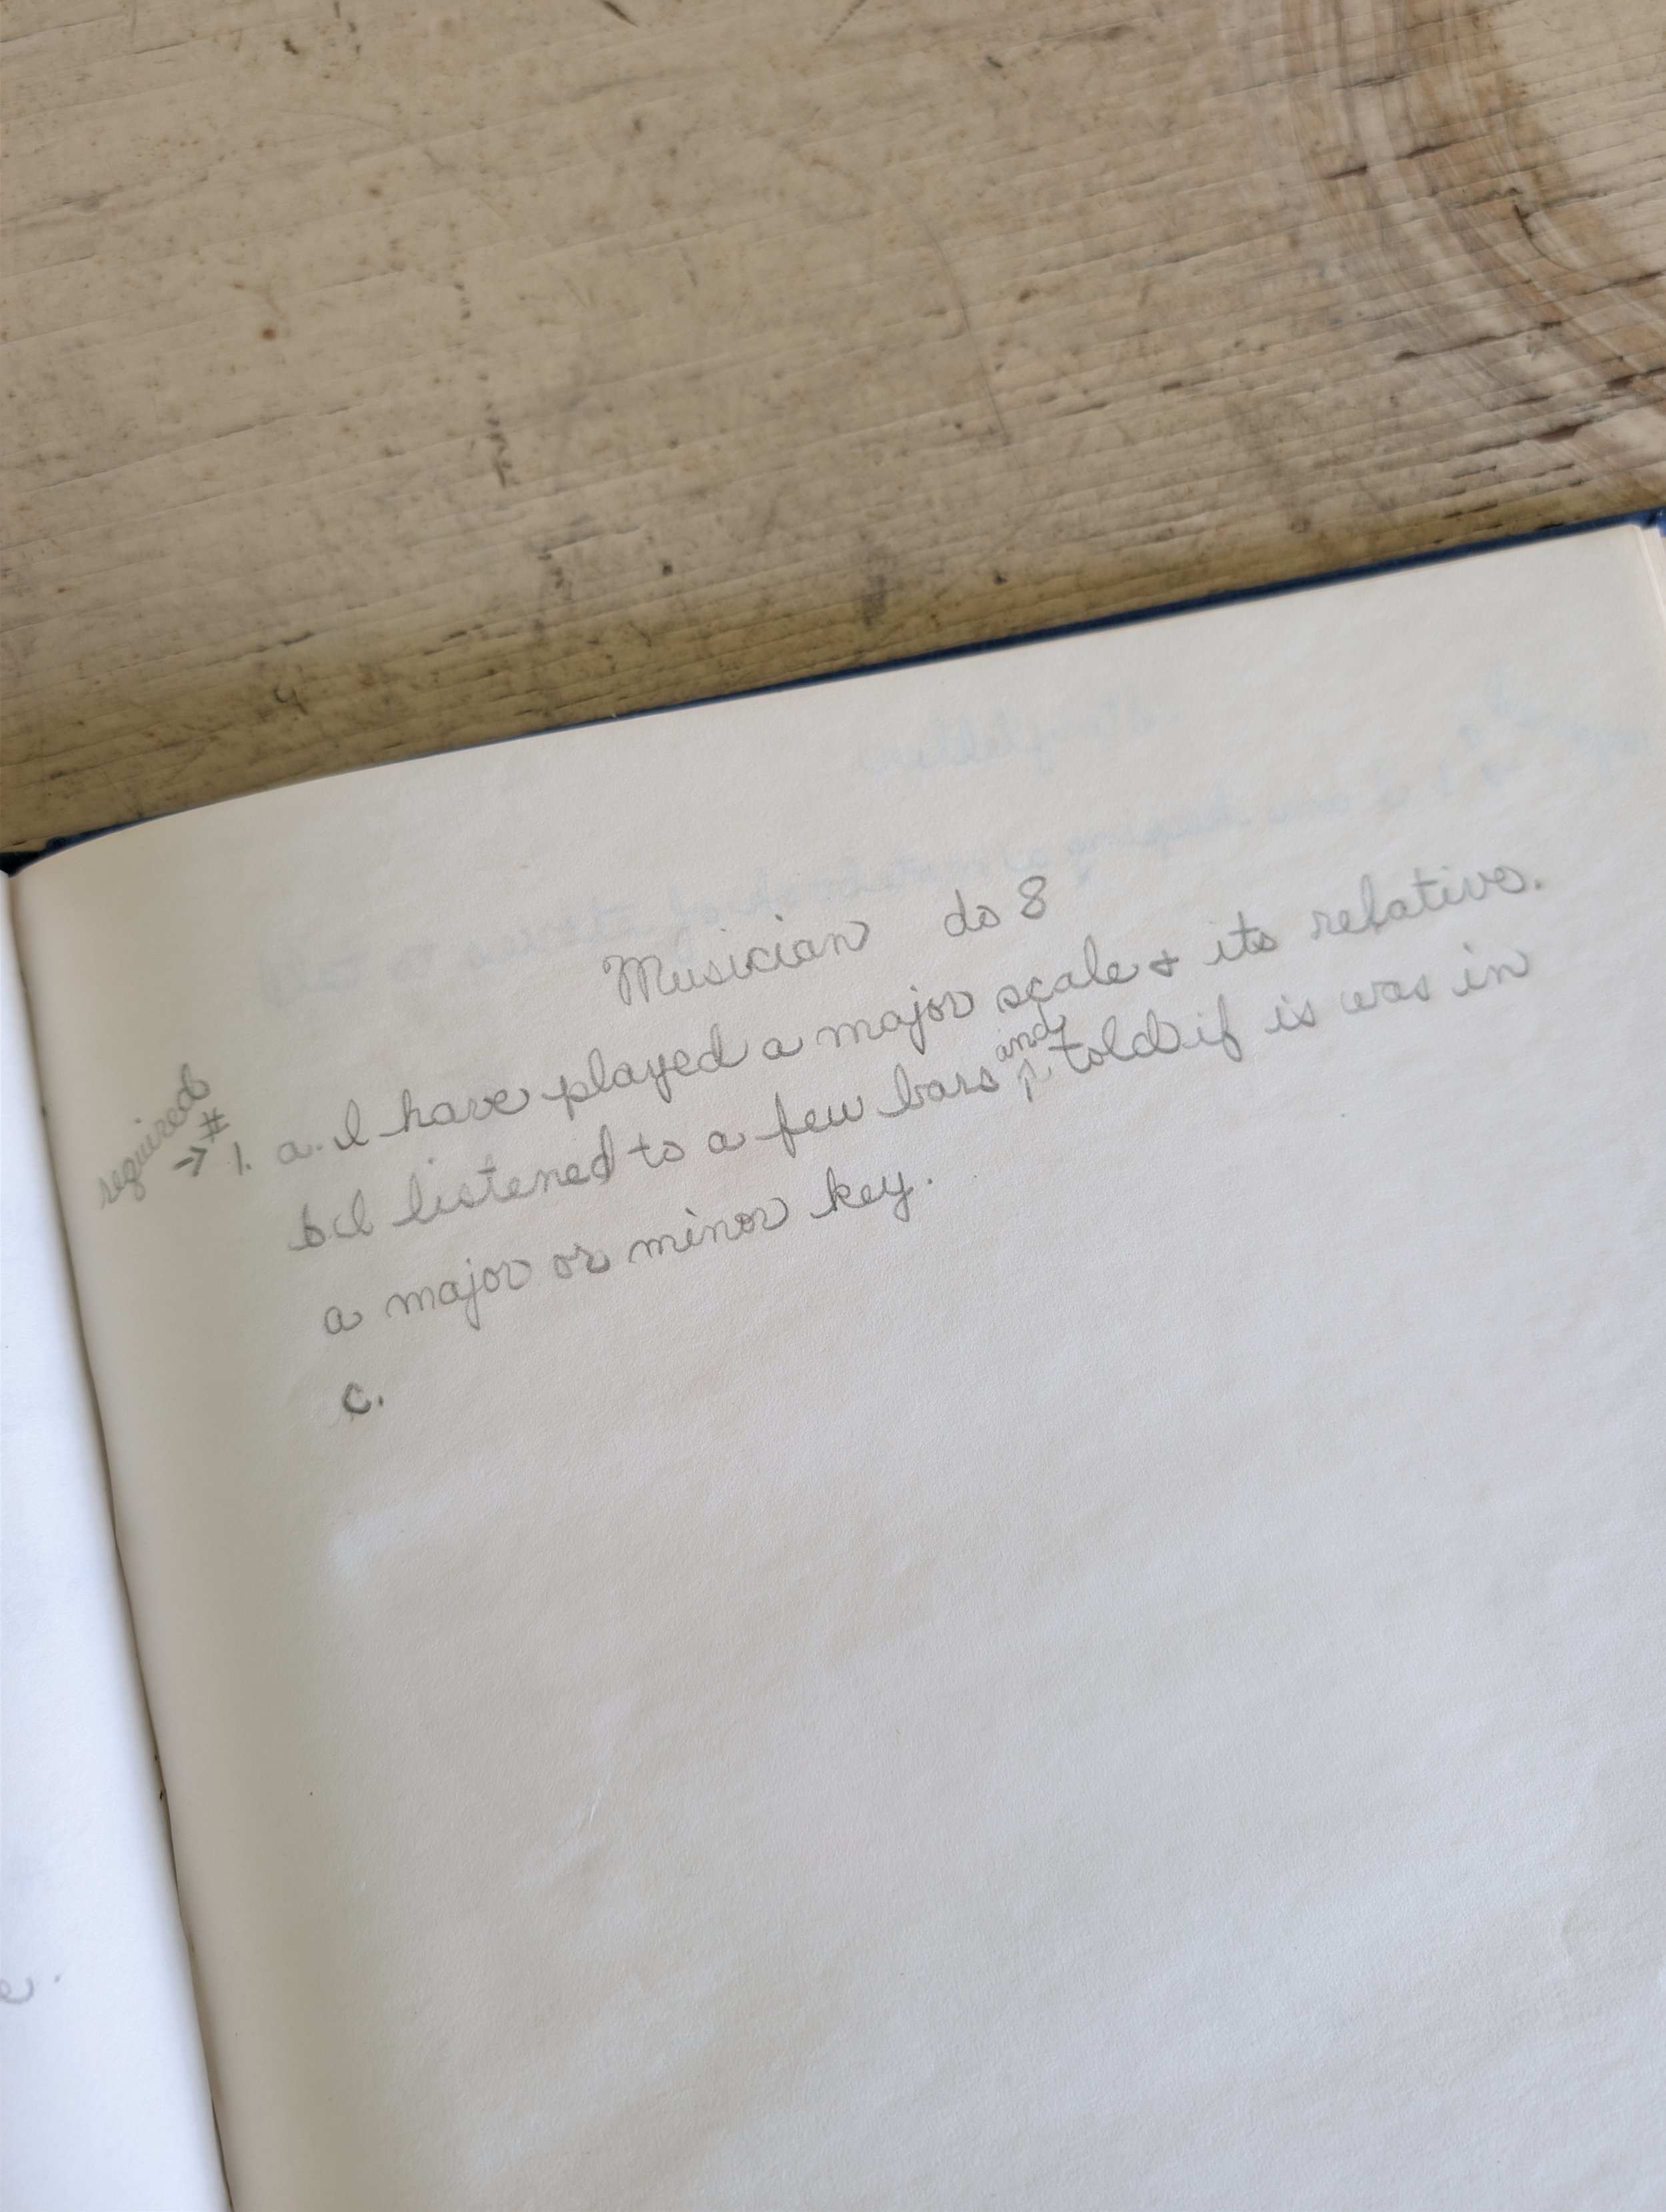 Musician do 8
required
→ # 1. a. I have played a major scale & its relative.
b I listened to a few bars and told if is was in
a major or minor key.
c.